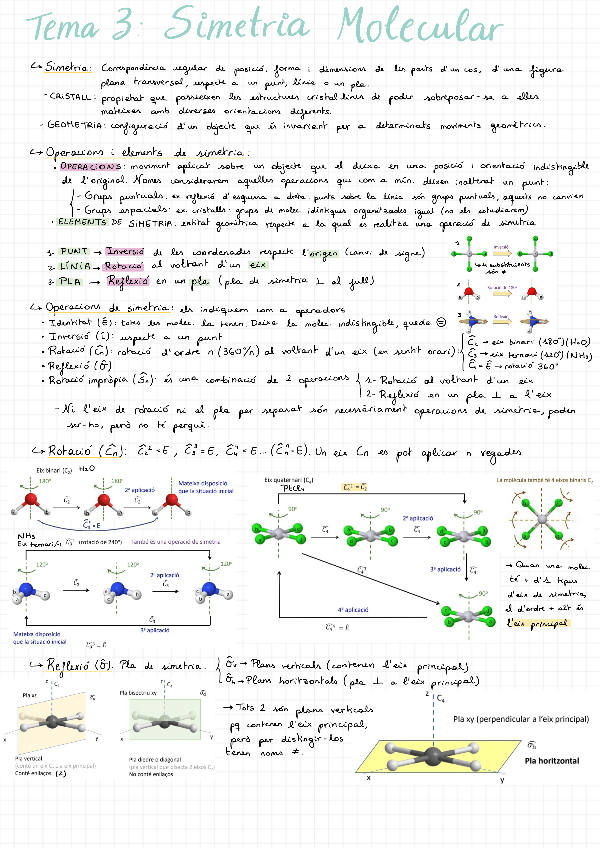 Tema 3: Simetria Molecular
↳ Simetria: Correspondència regular de posició, forma i dimensions de les parts d'un cos, d'una figura
plana transversal, respecte a un punt, línia o un pla.
- CRISTALL: propietat que posseeixen les estructures cristal·lines de poder sobreposar-se a elles
mateixes amb diverses orientacions diferents.
- GEOMETRIA: configuració d'un objecte que és invariant per a determinats moviments geomètrics.
↳ Operacions i elements de simetria:
• OPERACIONS: moviment aplicat sobre un objecte que el deixa en una posició i orientació indistingible
de l'original. Només considerarem aquelles operacions que com a mín. deixen inalterat un punt:
- Grups puntuals: ex reflexió d'esquerra a dreta: punts sobre la línia són grups puntuals, aquests no canvien
- Grups espacials: ex cristalls: grups de molec idèntiques organitzades igual (no els estudiarem)
• ELEMENTS DE SIMETRIA: entitat geomètrica respecte a la qual es realitza una operació de simetria
1. PUNT → Inversió de les coordenades respecte l'origen (canvi de signe)
2. LÍNIA → Rotació al voltant d'un eix
3. PLA → Reflexió en un pla (pla de simetria ⊥ al full)
1. Inversió
↳ 4 substituents
són =
2. Rotació de 180°
3. Reflexió
↳ Operacions de simetria: els indiquem com a operadors
• Identitat (Ê): totes les molec. la tenen. Deixa la molec indistingible, queda =
• Inversió (î): respecte a un punt
• Rotació (Ĉn): rotació d'ordre n (360°/n) al voltant d'un eix (en sentit horari)
Ĉ2 → eix binari (180°) (H2O)
Ĉ3 → eix ternari (120°) (NH3)
Ĉ1 = Ê → rotació 360°
• Reflexió (σ̂)
• Rotació impròpia (Ŝn): és una combinació de 2 operacions
1- Rotació al voltant d'un eix
2- Reflexió en un pla ⊥ a l'eix
- Ni l'eix de rotació ni el pla per separat són necessàriament operacions de simetria, poden
ser-ho, però no té perquè.
↳ Rotació (Ĉn): Ĉ2² = E, Ĉ3³ = E, Ĉ4⁴ = E... (Ĉnⁿ = E). Un eix Cn es pot aplicar n vegades
Eix binari (C2) H2O
180°
180°
2ª aplicació
Mateixa disposició
que la situació inicial
Ĉ2
Ĉ2
Ĉ2² = E
NH3
Ex ternari, C3
(rotació de 240°)
També és una operació de simetria
120°
120°
120°
Ĉ3
2ª aplicació
Ĉ3
3ª aplicació
Mateixa disposició
que la situació inicial
Ĉ3³ = Ê
Eix quaternari (C4)
PtCl4
Ĉ4² = Ĉ2
90°
90°
90°
Ĉ4
2ª aplicació
Ĉ4
3ª aplicació
Ĉ4
90°
4ª aplicació
Ĉ4⁴ = Ê
La molècula també té 4 eixos binaris C2
→ Quan una molec.
té + d'1 tipus
d'eix de simetria,
el d'ordre + alt és
l'eix principal
↳ Reflexió (σ̂). Pla de simetria.
σ̂v → Plans verticals (contenen l'eix principal)
σ̂h → Plans horitzontals (pla ⊥ a l'eix principal)
Pla xz
z C4
σv
x
y
Pla vertical
Conté enllaços (2)
Pla bisectriu xy
z C4
σd
x
y
Pla diedre o diagonal
(pla vertical que bisecta 2 eixos C2)
No conté enllaços
→ Tots 2 són plans verticals
pq contenen l'eix principal,
però per distingir-los
tenen noms ≠.
z C4
Pla xy (perpendicular a l'eix principal)
σ̂h
Pla horitzontal
x
y